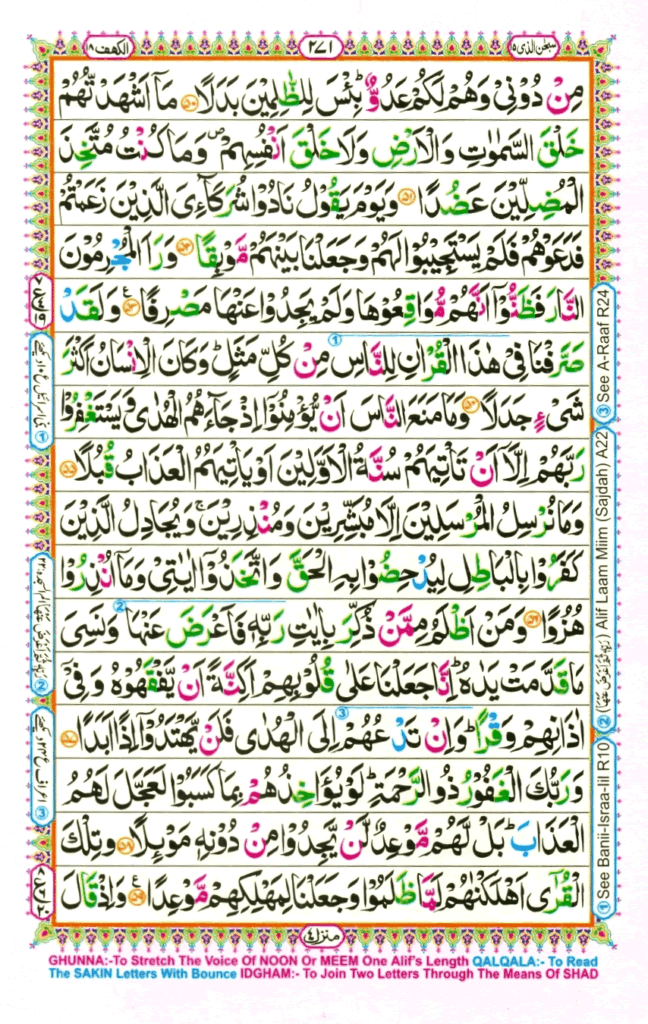 سبحن الذي ١٥
٢٧١
الكهف ١٨
مِنْ دُوْنِیْ وَهُمْ لَكُمْ عَدُوٌّ ؕ بِئْسَ لِلظّٰلِمِیْنَ بَدَلًا ۝٥٠ مَاۤ اَشْهَدْتُّهُمْ
خَلْقَ السَّمٰوٰتِ وَالْاَرْضِ وَلَا خَلْقَ اَنْفُسِهِمْ ۪ وَمَا كُنْتُ مُتَّخِذَ
الْمُضِلِّیْنَ عَضُدًا ۝٥١ وَیَوْمَ یَقُوْلُ نَادُوْا شُرَكَآءِیَ الَّذِیْنَ زَعَمْتُمْ
فَدَعَوْهُمْ فَلَمْ یَسْتَجِیْبُوْا لَهُمْ وَجَعَلْنَا بَیْنَهُمْ مَّوْبِقًا ۝٥٢ وَرَاَ الْمُجْرِمُوْنَ
النَّارَ فَظَنُّوْۤا اَنَّهُمْ مُّوَاقِعُوْهَا وَلَمْ یَجِدُوْا عَنْهَا مَصْرِفًا ۝٥٣ وَلَقَدْ
صَرَّفْنَا فِیْ هٰذَا الْقُرْاٰنِ لِلنَّاسِ مِنْ كُلِّ مَثَلٍ ؕ وَكَانَ الْاِنْسَانُ اَكْثَرَ
شَیْءٍ جَدَلًا ۝٥٤ وَمَا مَنَعَ النَّاسَ اَنْ یُّؤْمِنُوْۤا اِذْ جَآءَهُمُ الْهُدٰی وَیَسْتَغْفِرُوْا
رَبَّهُمْ اِلَّاۤ اَنْ تَاْتِیَهُمْ سُنَّةُ الْاَوَّلِیْنَ اَوْ یَاْتِیَهُمُ الْعَذَابُ قُبُلًا ۝٥٥
وَمَا نُرْسِلُ الْمُرْسَلِیْنَ اِلَّا مُبَشِّرِیْنَ وَمُنْذِرِیْنَ ۚ وَیُجَادِلُ الَّذِیْنَ
كَفَرُوْا بِالْبَاطِلِ لِیُدْحِضُوْا بِهِ الْحَقَّ وَاتَّخَذُوْۤا اٰیٰتِیْ وَمَاۤ اُنْذِرُوْا
هُزُوًا ۝٥٦ وَمَنْ اَظْلَمُ مِمَّنْ ذُكِّرَ بِاٰیٰتِ رَبِّهٖ فَاَعْرَضَ عَنْهَا وَنَسِیَ
مَا قَدَّمَتْ یَدٰهُ ؕ اِنَّا جَعَلْنَا عَلٰی قُلُوْبِهِمْ اَكِنَّةً اَنْ یَّفْقَهُوْهُ وَفِیْۤ
اٰذَانِهِمْ وَقْرًا ؕ وَاِنْ تَدْعُهُمْ اِلَی الْهُدٰی فَلَنْ یَّهْتَدُوْۤا اِذًا اَبَدًا ۝٥٧
وَرَبُّكَ الْغَفُوْرُ ذُو الرَّحْمَةِ ؕ لَوْ یُؤَاخِذُهُمْ بِمَا كَسَبُوْا لَعَجَّلَ لَهُمُ
الْعَذَابَ ؕ بَلْ لَّهُمْ مَّوْعِدٌ لَّنْ یَّجِدُوْا مِنْ دُوْنِهٖ مَوْئِلًا ۝٥٨ وَتِلْكَ
الْقُرٰۤی اَهْلَكْنٰهُمْ لَمَّا ظَلَمُوْا وَجَعَلْنَا لِمَهْلِكِهِمْ مَّوْعِدًا ۝٥٩ وَاِذْ قَالَ
منزل ٤
③ See A-Raaf R24
② Alif Laam Miim (Sajdah) A22
① See Banii-Israa-Iil R10
GHUNNA:-To Stretch The Voice Of NOON Or MEEM One Alif's Length QALQALA:- To Read
The SAKIN Letters With Bounce IDGHAM:- To Join Two Letters Through The Means Of SHAD